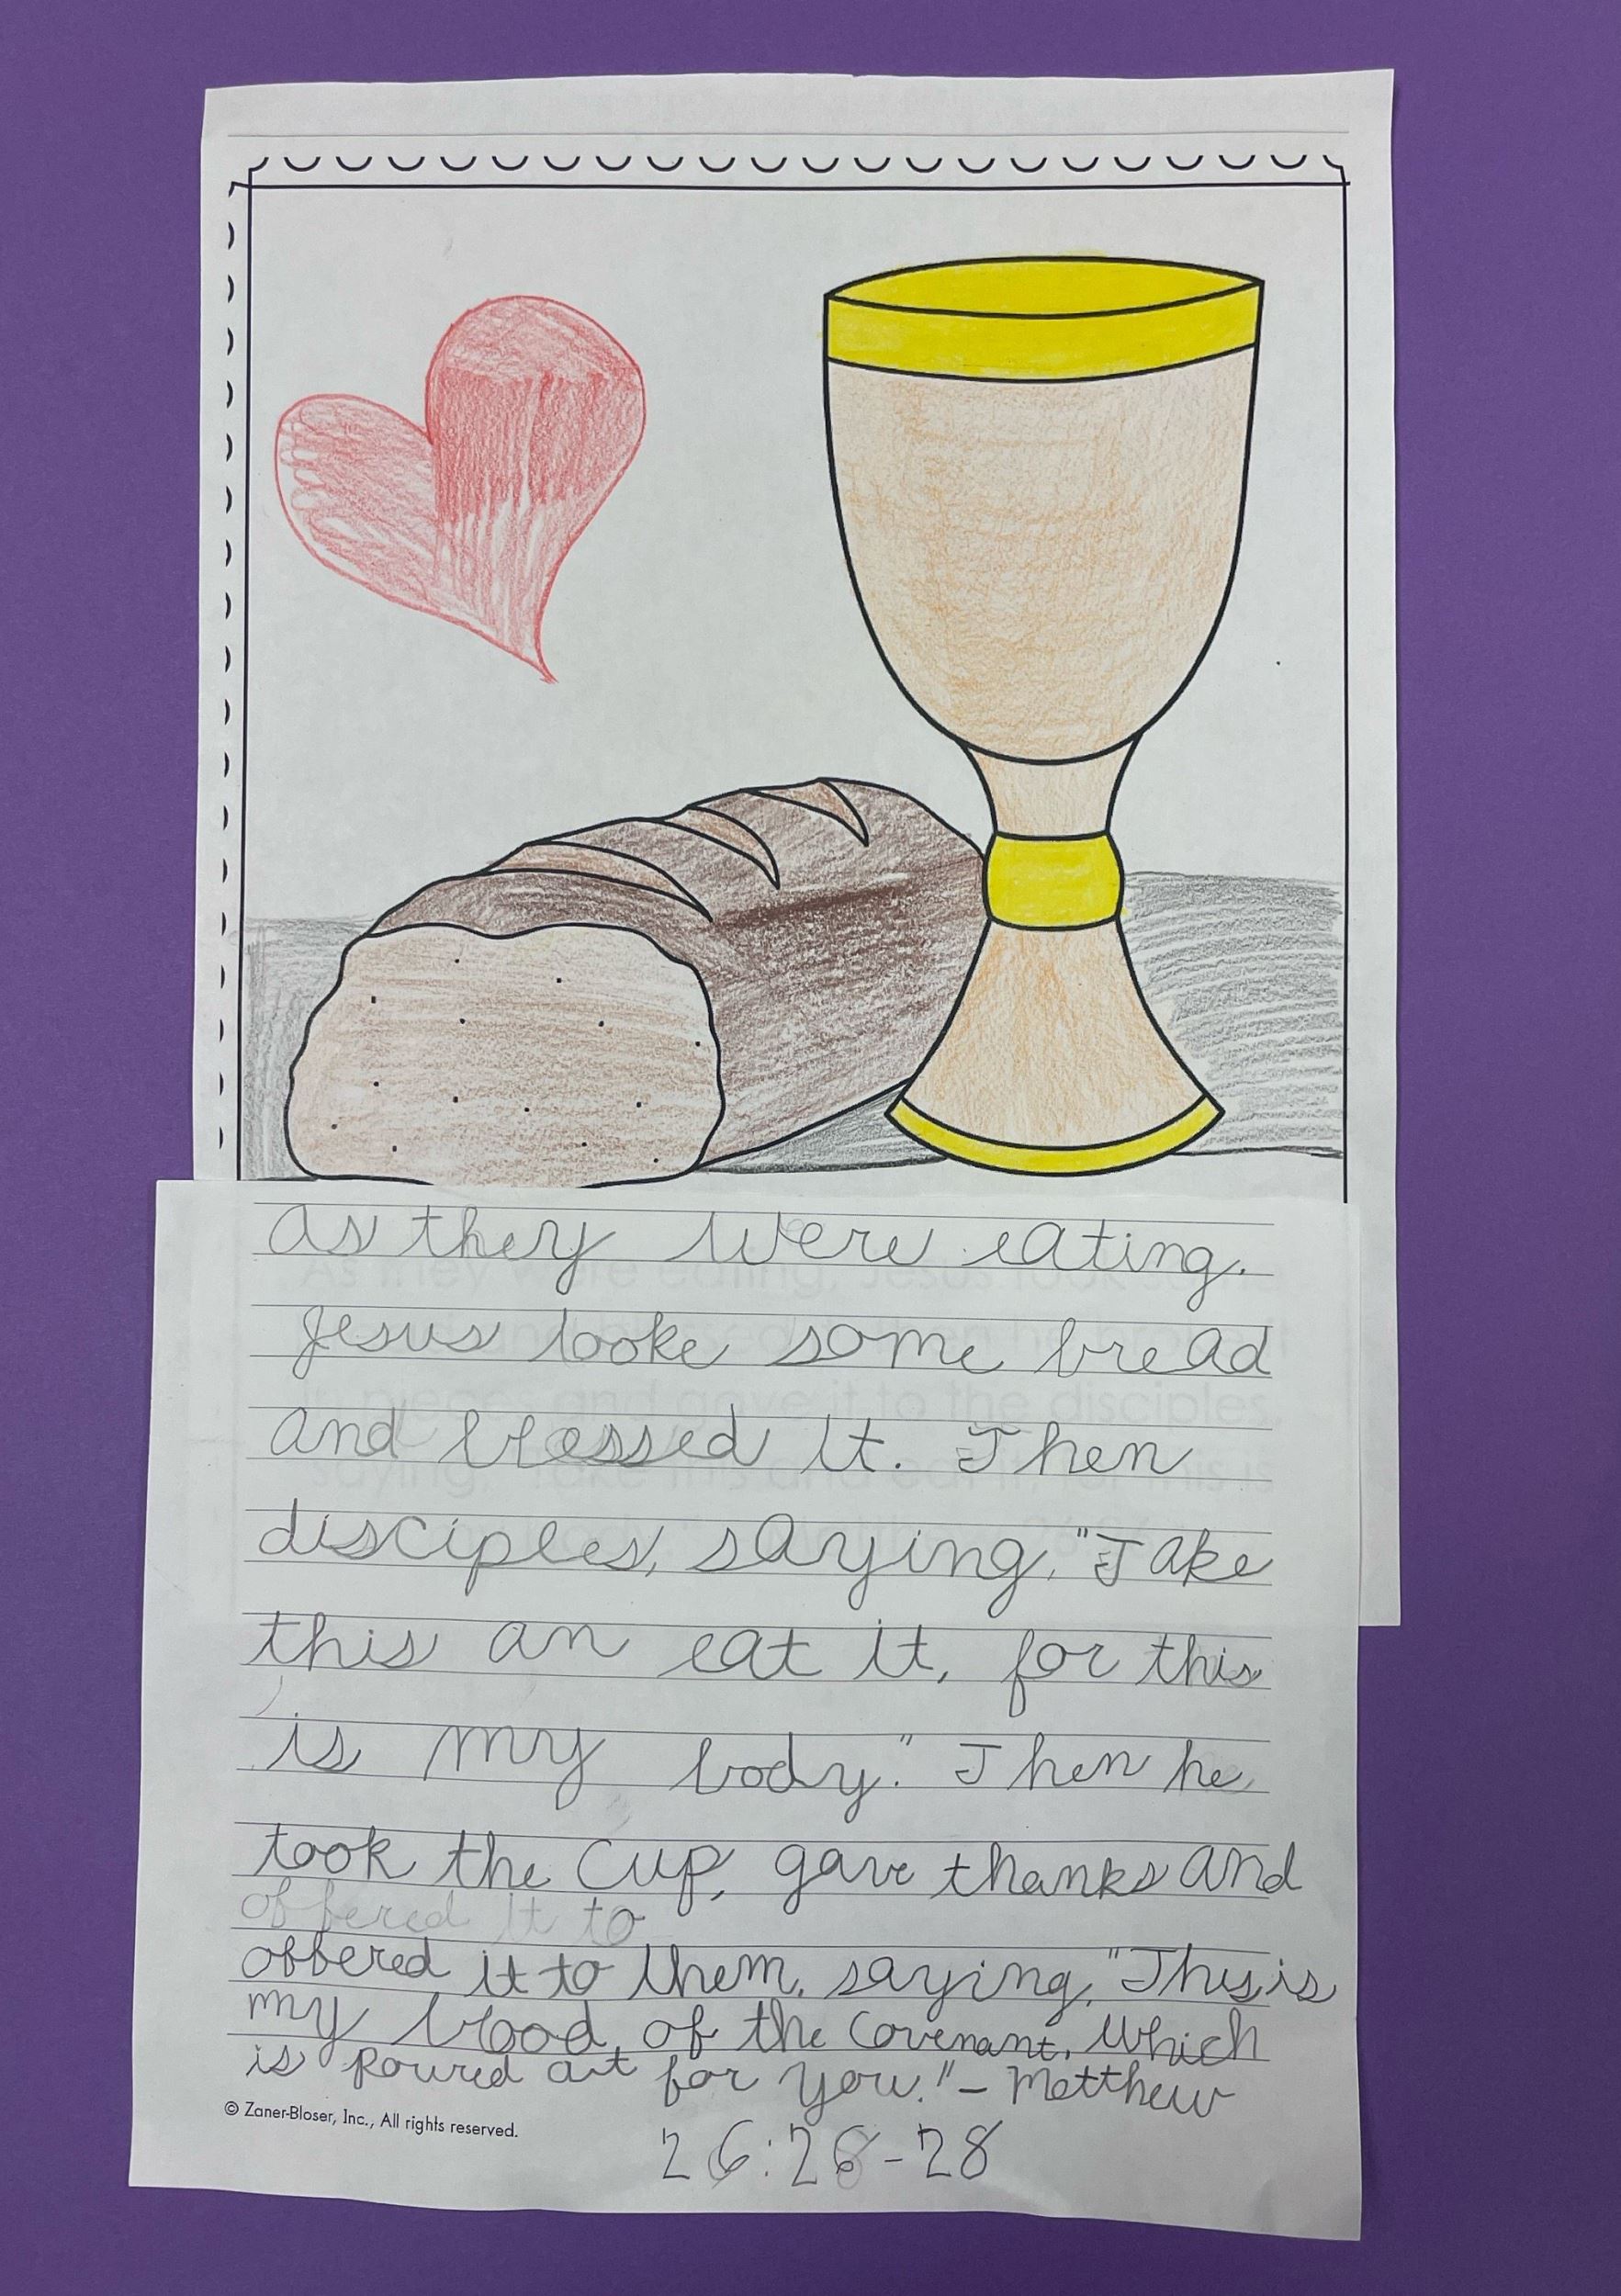 as they were eating.
Jesus tooke some bread
and blessed it. Then
disciples, saying, "Take
this an eat it, for this
is my body." Then he
took the cup, gave thanks and
offered it to
offered it to them, saying, "This is
my blood of the Covenant, which
is Poured out for you." - Matthew
© Zaner-Bloser, Inc., All rights reserved.
26:26-28